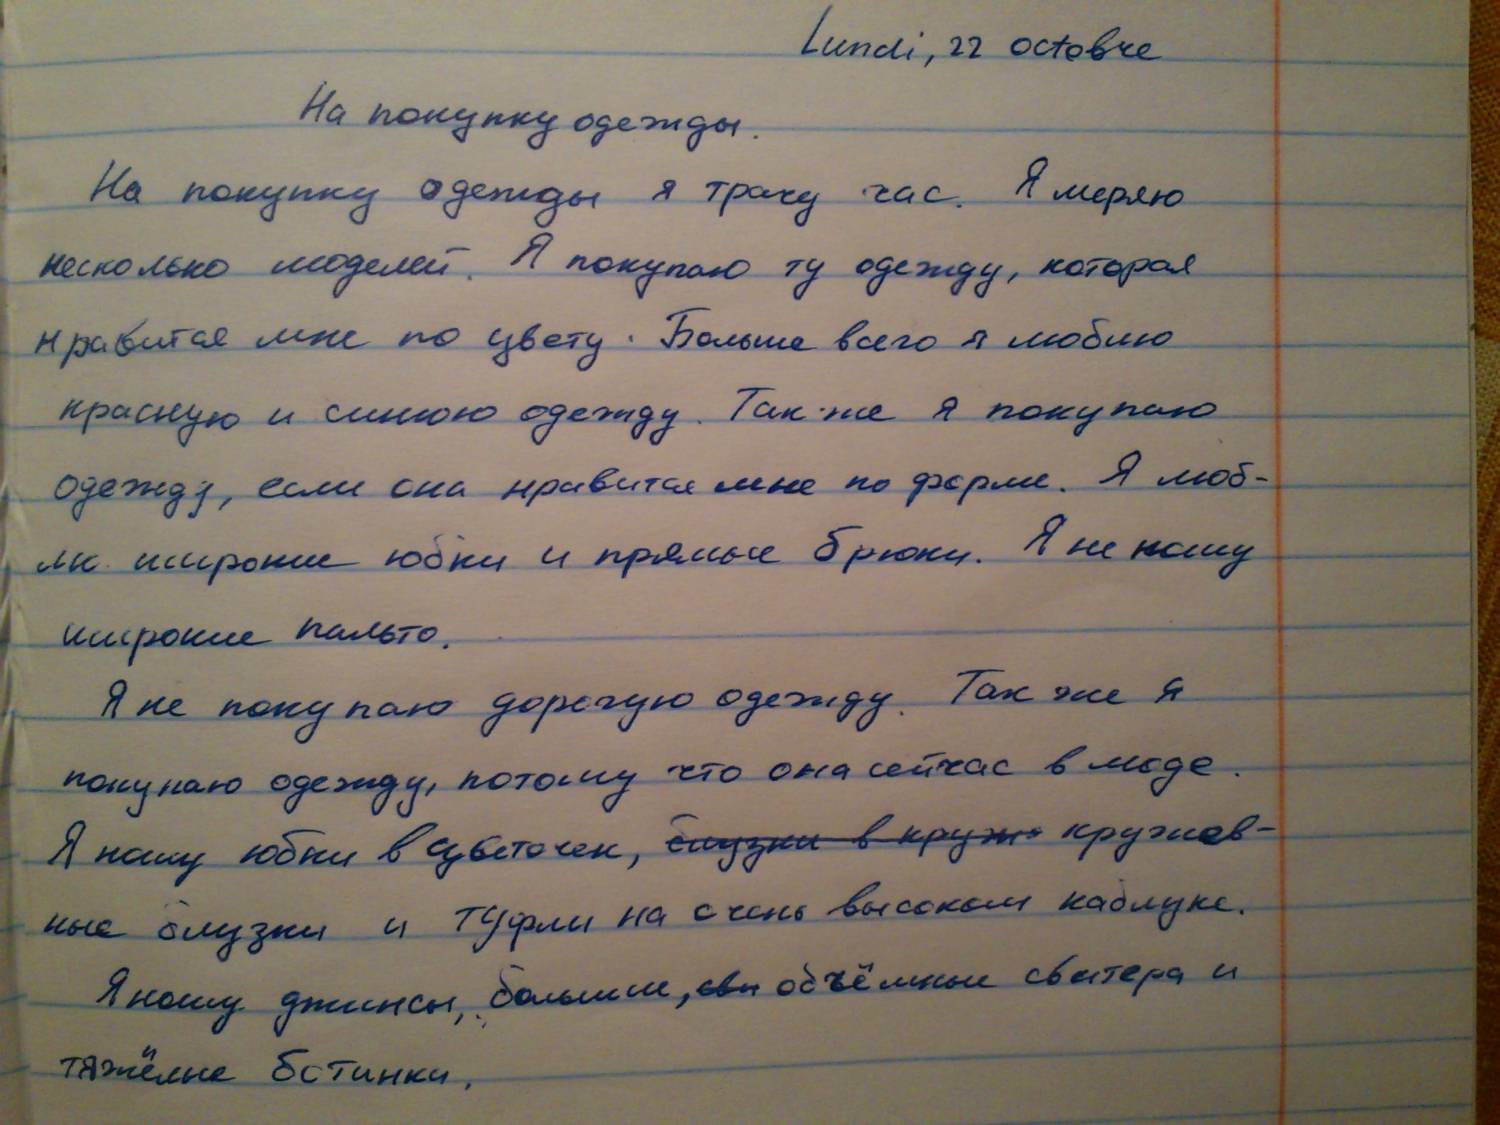 Lundi, 22 octobre
На покупку одежды.
На покупку одежды я трачу час. Я меряю
несколько моделей. Я покупаю ту одежду, которая
нравится мне по цвету. Больше всего я люблю
красную и синюю одежду. Так же я покупаю
одежду, если она нравится мне по форме. Я люб-
лю широкие юбки и прямые брюки. Я не ношу
широкие пальто.
Я не покупаю дорогую одежду. Так же я
покупаю одежду, потому что она сейчас в моде.
Я ношу юбки в цветочек, блузки в круж кружев-
ные блузки и туфли на очень высоком каблуке.
Я ношу джинсы, большие, сви объёмные свитера и
тяжёлые ботинки.